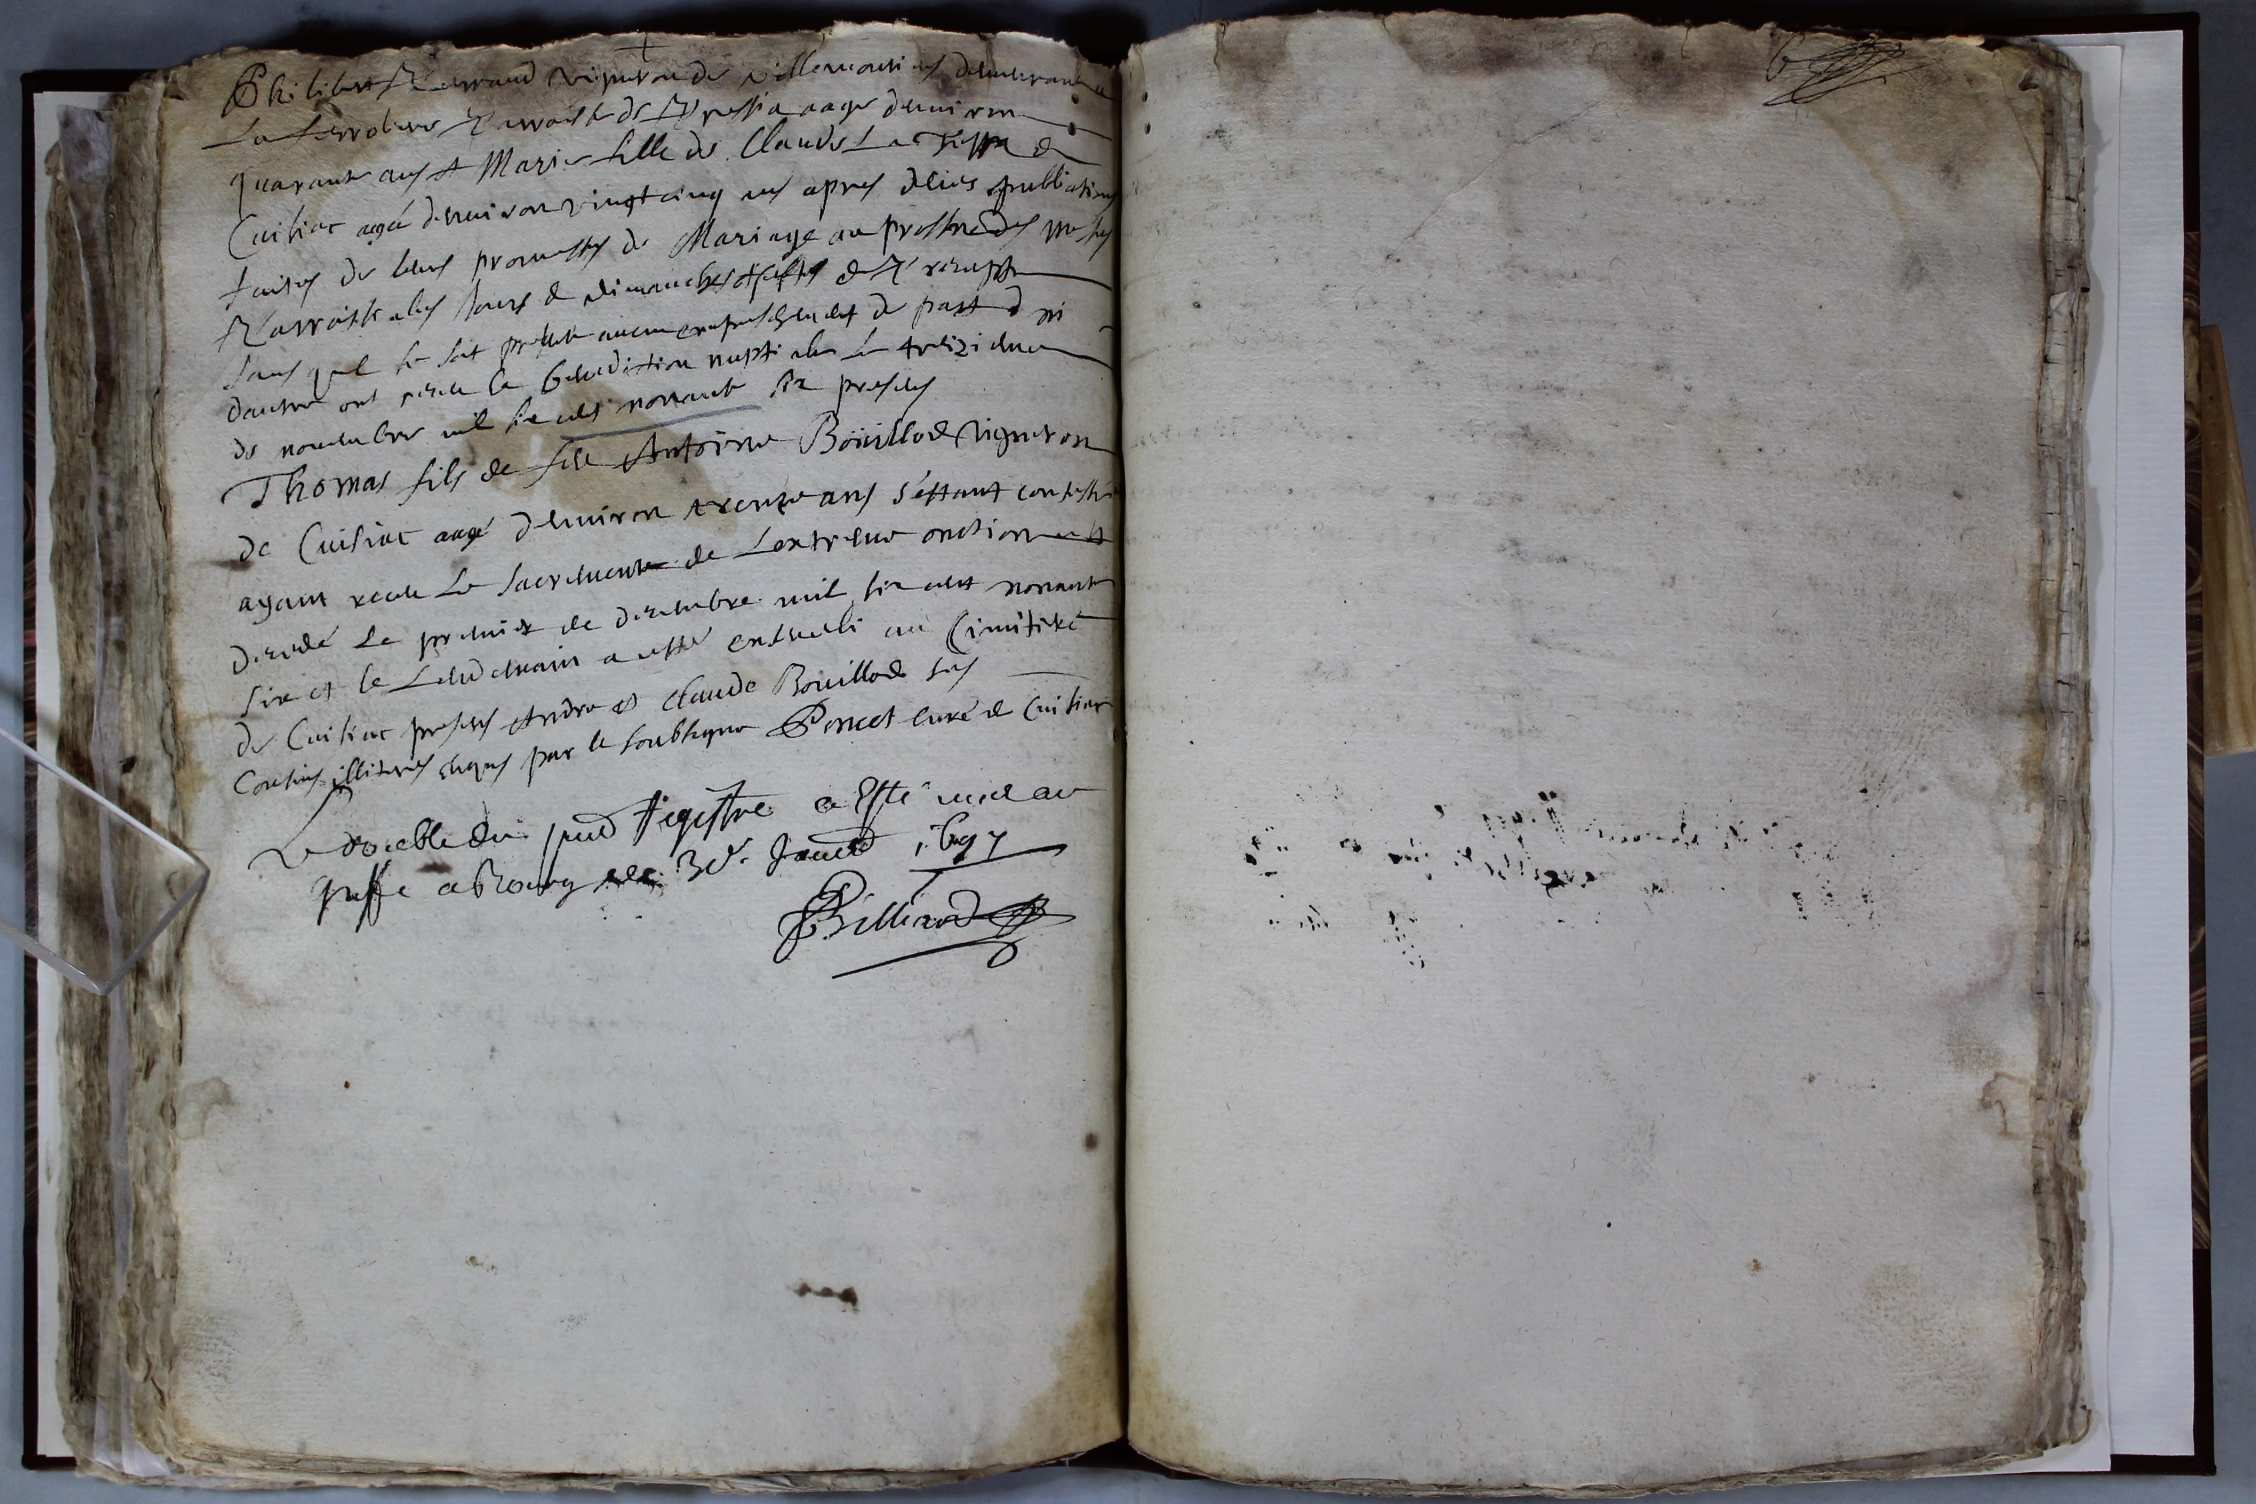 Philibert vigneron de villemoutier demeurant a
La parroisse de Pressia aagé denviron
quarante ans et Marie fille de Claude La de
Cuisiat agé denviron vingt cinq ans apres deües publications
faites de leurs promesses de Mariage au prosne des messes
Parroissiales jours de dimanches et festes de precepte
sans quil se soit presenté aucun empeschement de part ni
dautre ont receu la benediction nuptiale Le treizieme
de novembre mil six cents nonante six presens
Thomas fils de feu Antoine Boüillod vigneron
de Cuisiat aagé denviron trente ans s'estant confessé
ayant receu Le sacrement de Lextreme onction est
decedé Le premier de decembre mil six cent nonante
six et le Lendemain a esté enseveli au Cimitiere
de Cuisiat presens Andre et Claude Bouillod ses
cousins illiteres requis par le soubsigne Poncet curé de Cuisiat
Le double du pnt Registre a Esté mis au
greffe a Bourg le 30e. Janvr 1697
Billiard